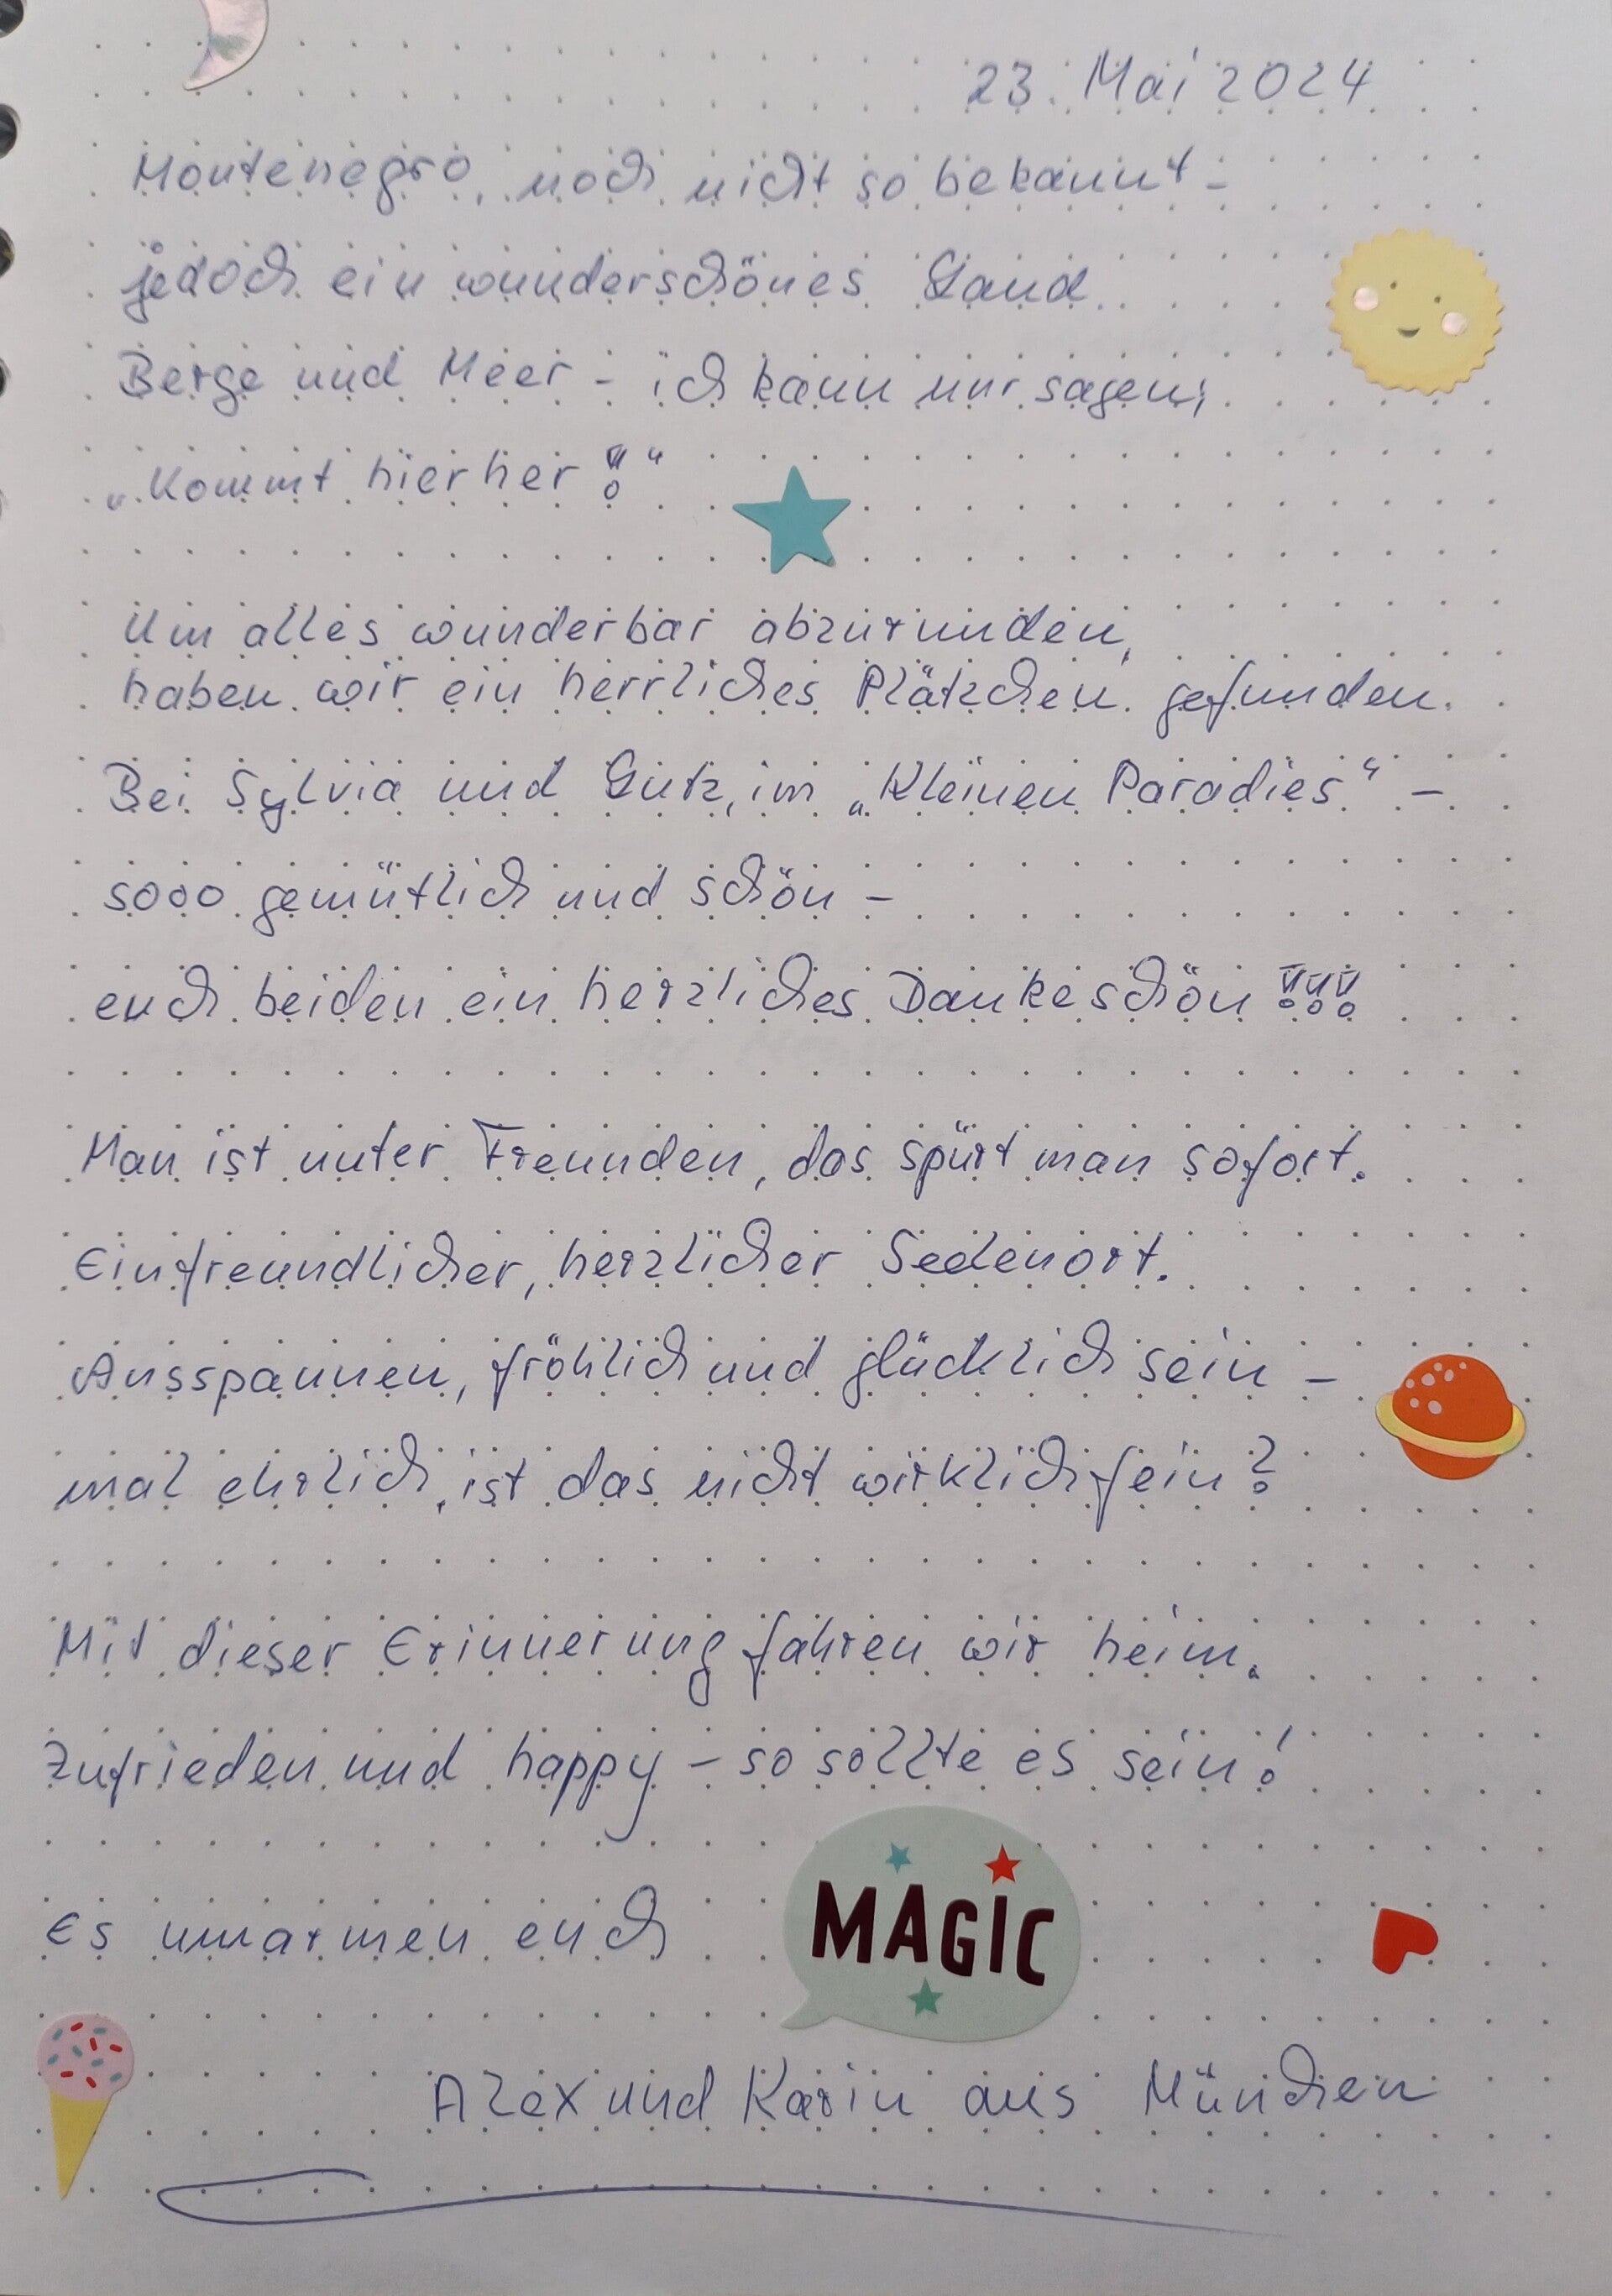 23. Mai 2024
Montenegro, noch nicht so bekannt -
jedoch ein wunderschönes Land.
Berge und Meer - ich kann nur sagen;
„Kommt hierher!!“
Um alles wunderbar abzurunden,
haben wir ein herrliches Plätzchen gefunden.
Bei Sylvia und Lutz, im „Kleinen Paradies“ -
sooo gemütlich und schön -
euch beiden ein herzliches Dankeschön !!!
Man ist unter Freunden, das spürt man sofort.
Ein freundlicher, herzlicher Seelenort.
Ausspannen, fröhlich und glücklich sein -
mal ehrlich, ist das nicht wirklich fein?
Mit dieser Erinnerung fahren wir heim.
Zufrieden und happy - so sollte es sein!
Es umarmen euch
MAGIC
Alex und Karin aus München